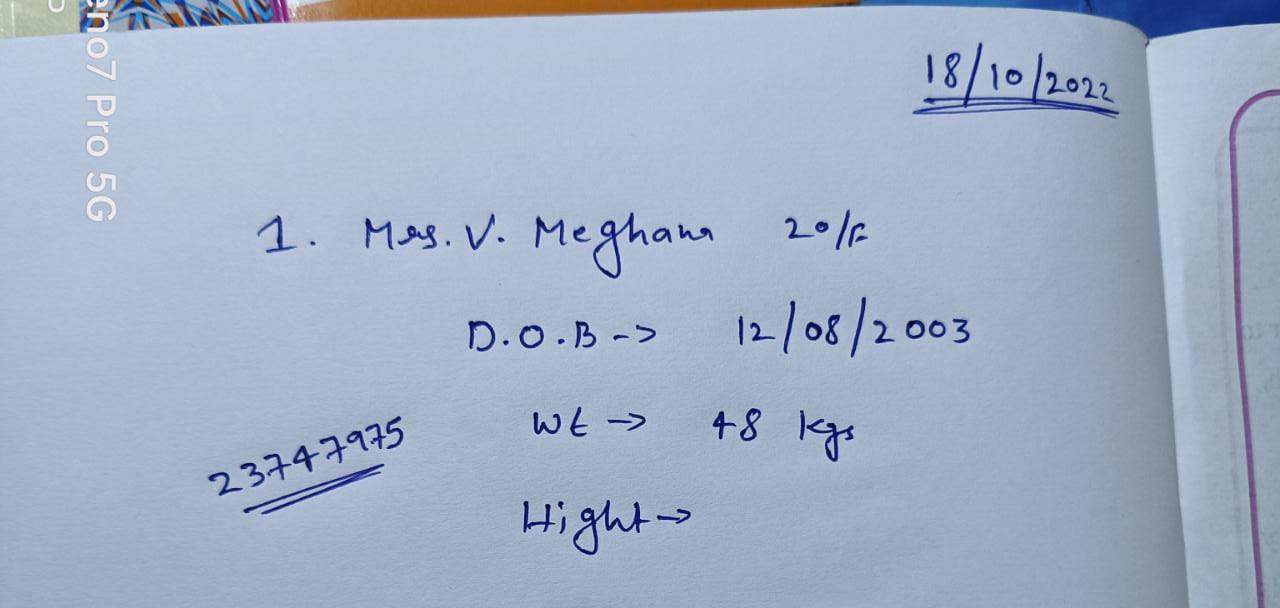 18/10/2022
1. Mrs. V. Meghana 20/F
D.O.B -> 12/08/2003
Wt -> 48 kgs
23747975
Hight ->
eno7 Pro 5G